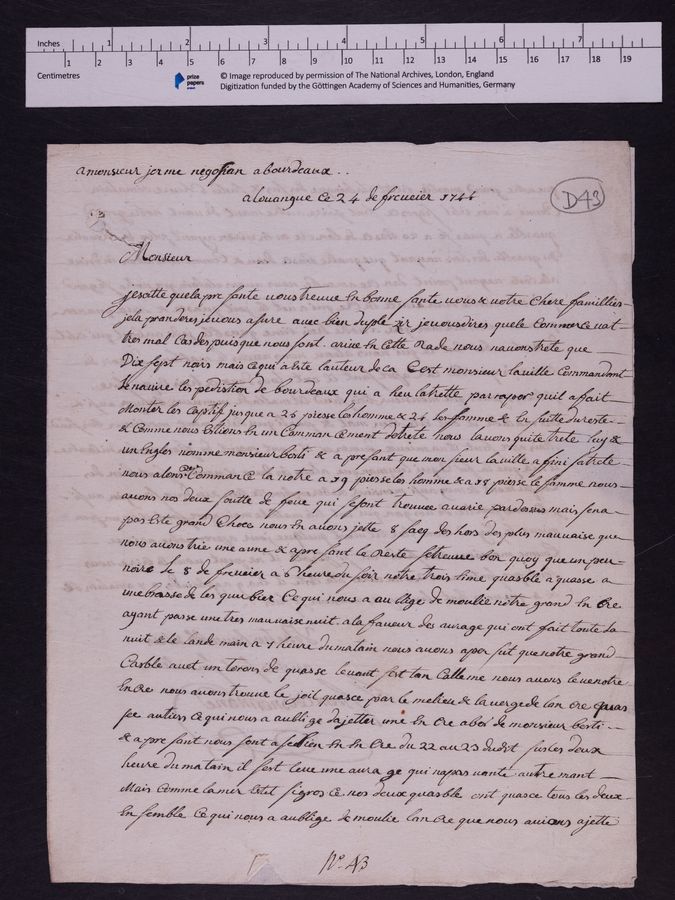 Inches 1 2 3 4 5 6 7
1 2 3 4 5 6 7 8 9 10 11 12 13 14 15 16 17 18 19
Centimetres
prize papers
© Image reproduced by permission of The National Archives, London, England
Digitization funded by the Göttingen Academy of Sciences and Humanities, Germany
amonsieur jerme negossian abourdeaux ..
alouangue ce 24 de freueier 1746
D43
Monsieur
jescitte quela pre sante uous treuue En bonne sante uous & uotre Chere famillies
jela prandores jeuous asure auec bien duplezir jeuousdires quele Commerce uat
tres mal Cas despuisque nous sont arriue En Cette Rade nous nauons trete que
Dix sept noirs mais cequi a Este lauteur deca Cest monsieur lauille Commandant
Lenauire les pedistion de bourdeaux qui a heu latrette par rapor quil a fait
Monter les Captif jusque a 25 piesse les homme & 24 les famme & En suitte dureste
& Comme nous Estions En un Comman cement detrete nous lauons quite trete luy &
un Engles nomme monsieur berti & a pre sant que mon sieur lauille a fini satrete
nous alons Commance la notre a 19 piesse les homme & a 18 piesse le famme nous
auons nos deux soutte de feue qui se sont trouuee auarie par dessus mais sena
pas Este grand Chose nous En auons jette 8 sacq des hors des plus mauuaise que
nous auons trie une aune & apre sant le Reste setreuue bon quoy que un peu
noire le 8 de freueier a 6 heure du soir notre trois sime quasble a quasse a
une brasse de les quu bier Ce qui nous a au blige de moulie notre grand En Cre
ayant passe une tres mauuaise nuit ala faueur des aurage qui ont fait toute la
nuit & le lande main a 7 heure du matain nous auons aper sut que notre grand
Casble auet un torons de quasse leuant sest tan Calle me nous auons leue notre
En Cre nous auons trouue le joil quasce par le melieu & la uerge de lan Cre quas
see au tiers Ce qui nous a aublige dajetter une En Cre abor de monsieur berti
& a pre sant nous sont a se bien En En Cre du 22 au 23 dudit sur les deux
heure du matain il sest leue une aura ge qui napas uante autre mant
Mais Comme lamer Etet sigros Ce nos deux quasble ont quasce tous les deux
En semble Ce qui nous a aublige de moulie lan Cre que nous auions ajette
No. 43